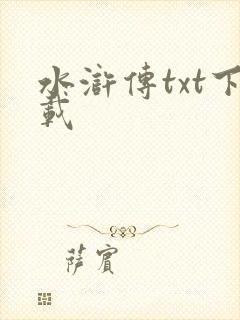 水滸傳txt下
載
薩賓